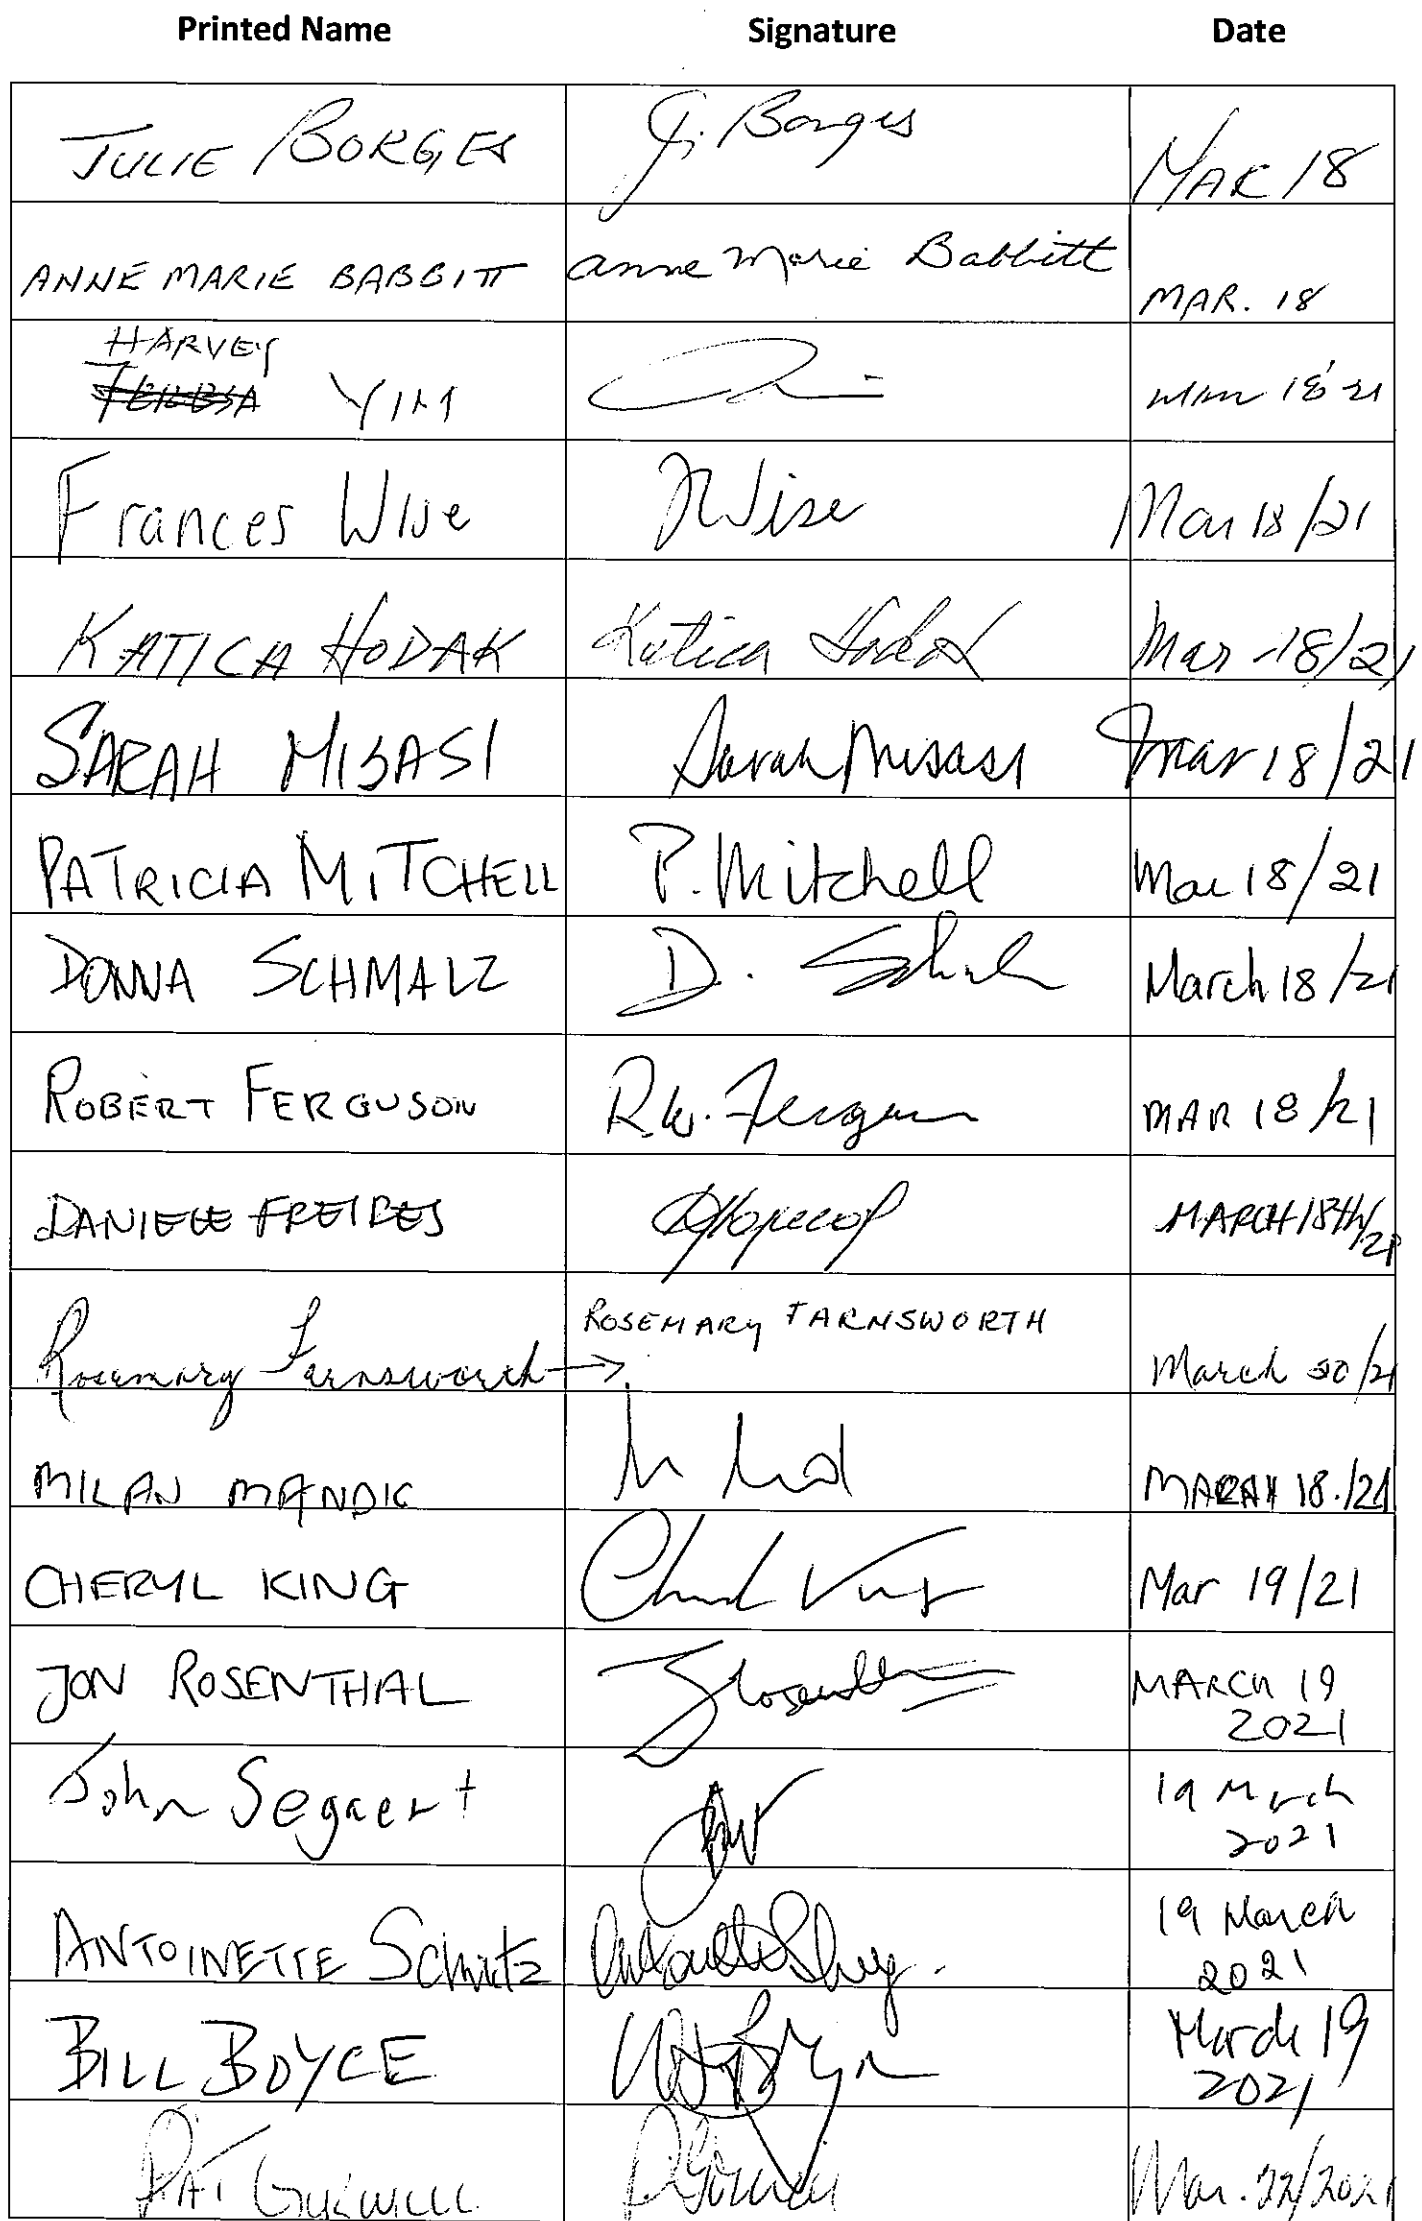 Printed Name Signature Date
JULIE BORGES J. Borges MAR 18
ANNE MARIE BABBITT Anne Marie Babbitt MAR. 18
HARVEY
TERESA YIM 18'21
Frances Wise FWise Mar 18/21
KATICA HODAK Katica Hodak Mar-18/21
SARAH MISASI Sarah Misasi Mar 18/21
PATRICIA MITCHELL P. Mitchell Mar 18/21
DONNA SCHMALZ D. March 18/21
ROBERT FERGUSON R.W. Ferguson MAR 18/21
DANIELE FREIRES MARCH 18th/21
ROSEMARY FARNSWORTH
Rosemary Farnsworth → March 20/21
MILAN MANDIC MARCH 18./21
CHERYL KING Mar 19/21
JON ROSENTHAL MARCH 19
2021
John Segaert 19 March
2021
ANTOINETTE 19 March
2021
BILL BOYCE March 19
2021
PAT Mar. 22/2021